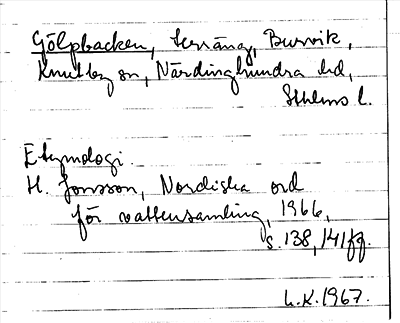 Gölpbacken, terräng, Burvik,
Knutby sn, Närdinghundra hd,
Sthlms l.
Etymologi.
H. Jonsson, Nordiska ord
för vattensamling, 1966,
s. 138, 141 fg.
L.K. 1967.